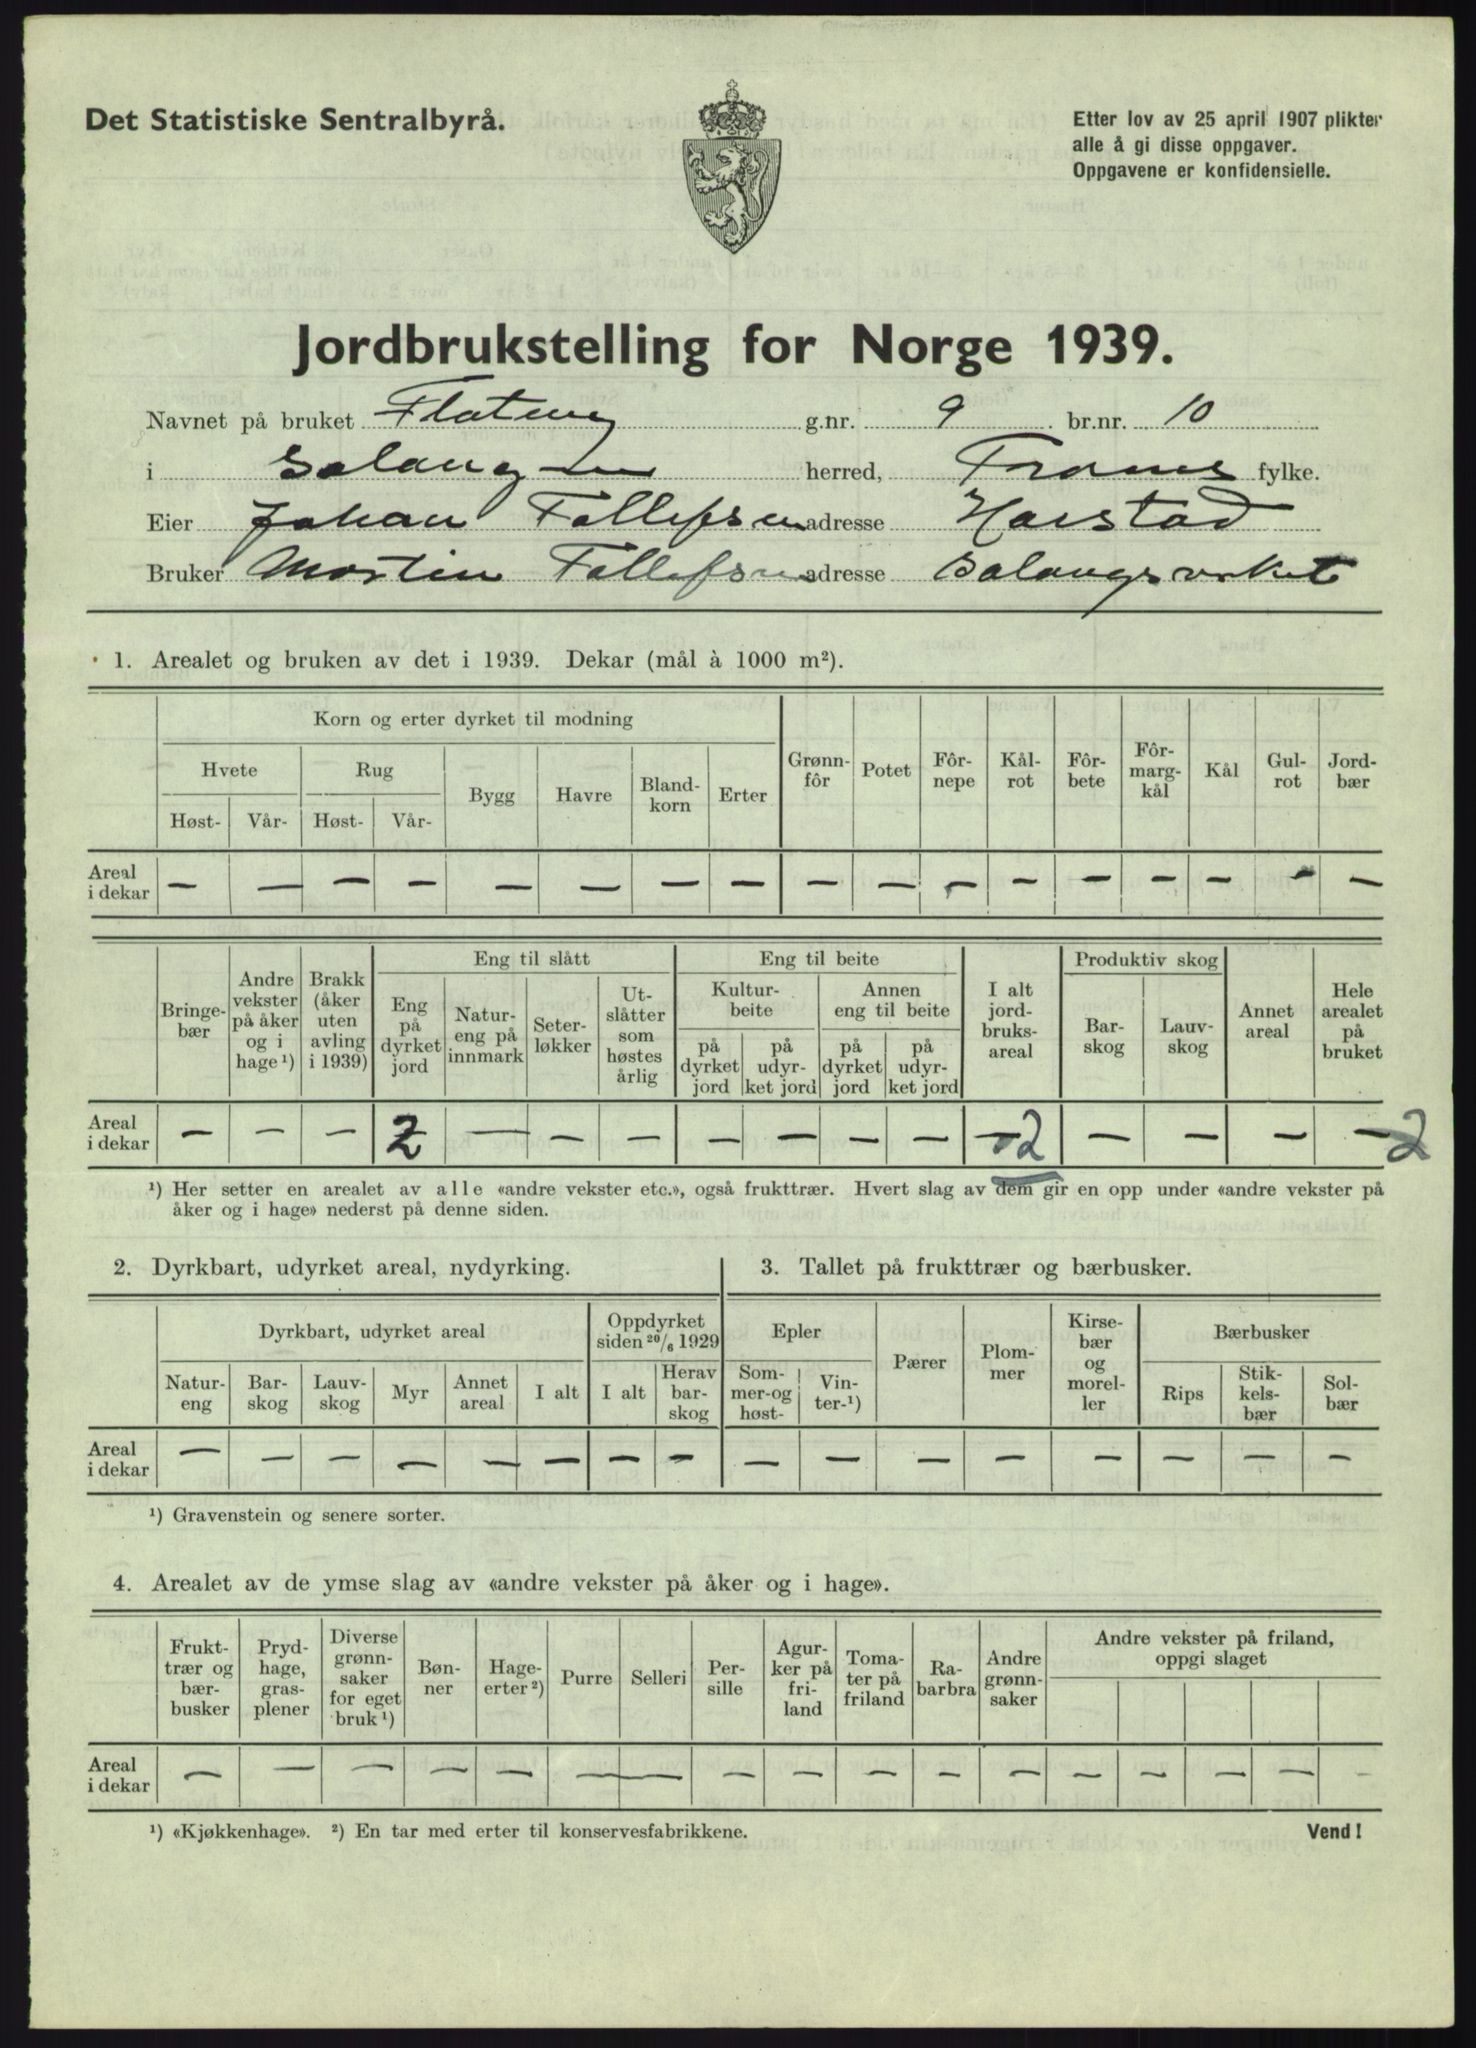 Det Statistiske Sentralbyrå.
Etter lov av 25 april 1907 plikter
alle å gi disse oppgaver.
Oppgavene er konfidensielle.
Jordbrukstelling for Norge 1939.
Navnet på bruket g.nr. 9 br.nr. 10
i Salangen herred, Troms fylke.
Eier Johan Tollefsen adresse Harstad
Bruker Martin Tollefsen adresse Salangsverket
1. Arealet og bruken av det i 1939. Dekar (mål à 1000 m²).
Korn og erter dyrket til modning
Hvete Rug Bygg Havre Bland-
korn Erter Grønn-
fôr Potet Fôr-
nepe Kål-
rot Fôr-
bete Fôr-
marg-
kål Kål Gul-
rot Jord-
bær
Høst- Vår- Høst- Vår-
Areal
i dekar — — — — — — — — — — — — — — — — —
Bringe-
bær Andre
vekster
på åker
og i
hage ¹) Brakk
(åker
uten
avling
i 1939) Eng til slått Eng til beite
Eng
på
dyrket
jord Natur-
eng på
innmark Seter-
løkker Ut-
slåtter
som
høstes
årlig
Kultur-
beite Annen
eng til beite
på
dyrket
jord på
udyr-
ket jord på
dyrket
jord på
udyr-
ket jord
I alt
jord-
bruks-
areal Produktiv skog
Bar-
skog Lauv-
skog Annet
areal Hele
arealet
på
bruket
Areal
i dekar — — — 2 — — — — — — — —2 — — — —2
¹) Her setter en arealet av alle «andre vekster etc.», også frukttrær. Hvert slag av dem gir en opp under «andre vekster på
åker og i hage» nederst på denne siden.
2. Dyrkbart, udyrket areal, nydyrking.
Dyrkbart, udyrket areal Oppdyrket
siden ²⁰/₆ 1929
Natur-
eng Bar-
skog Lauv-
skog Myr Annet
areal I alt I alt Herav
bar-
skog
Areal
i dekar — — — — — — — —
3. Tallet på frukttrær og bærbusker.
Epler Pærer Plom-
mer Kirse-
bær
og
morel-
ler Bærbusker
Som-
mer-og
høst- Vin-
ter-¹) Rips Stik-
kels-
bær Sol-
bær
— — — — — — — —
¹) Gravenstein og senere sorter.
4. Arealet av de ymse slag av «andre vekster på åker og i hage».
Frukt-
trær og
bær-
busker Pryd-
hage,
gras-
plener Diverse
grønn-
saker
for eget
bruk ¹) Bøn-
ner Hage-
erter ²) Purre Selleri Per-
sille Agur-
ker på
fri-
land Toma-
ter på
friland Ra-
barbra Andre
grønn-
saker Andre vekster på friland,
oppgi slaget
Areal
i dekar — — — — — — — — — — — — — — — — —
¹) «Kjøkkenhage». ²) En tar med erter til konservesfabrikkene.
Vend!